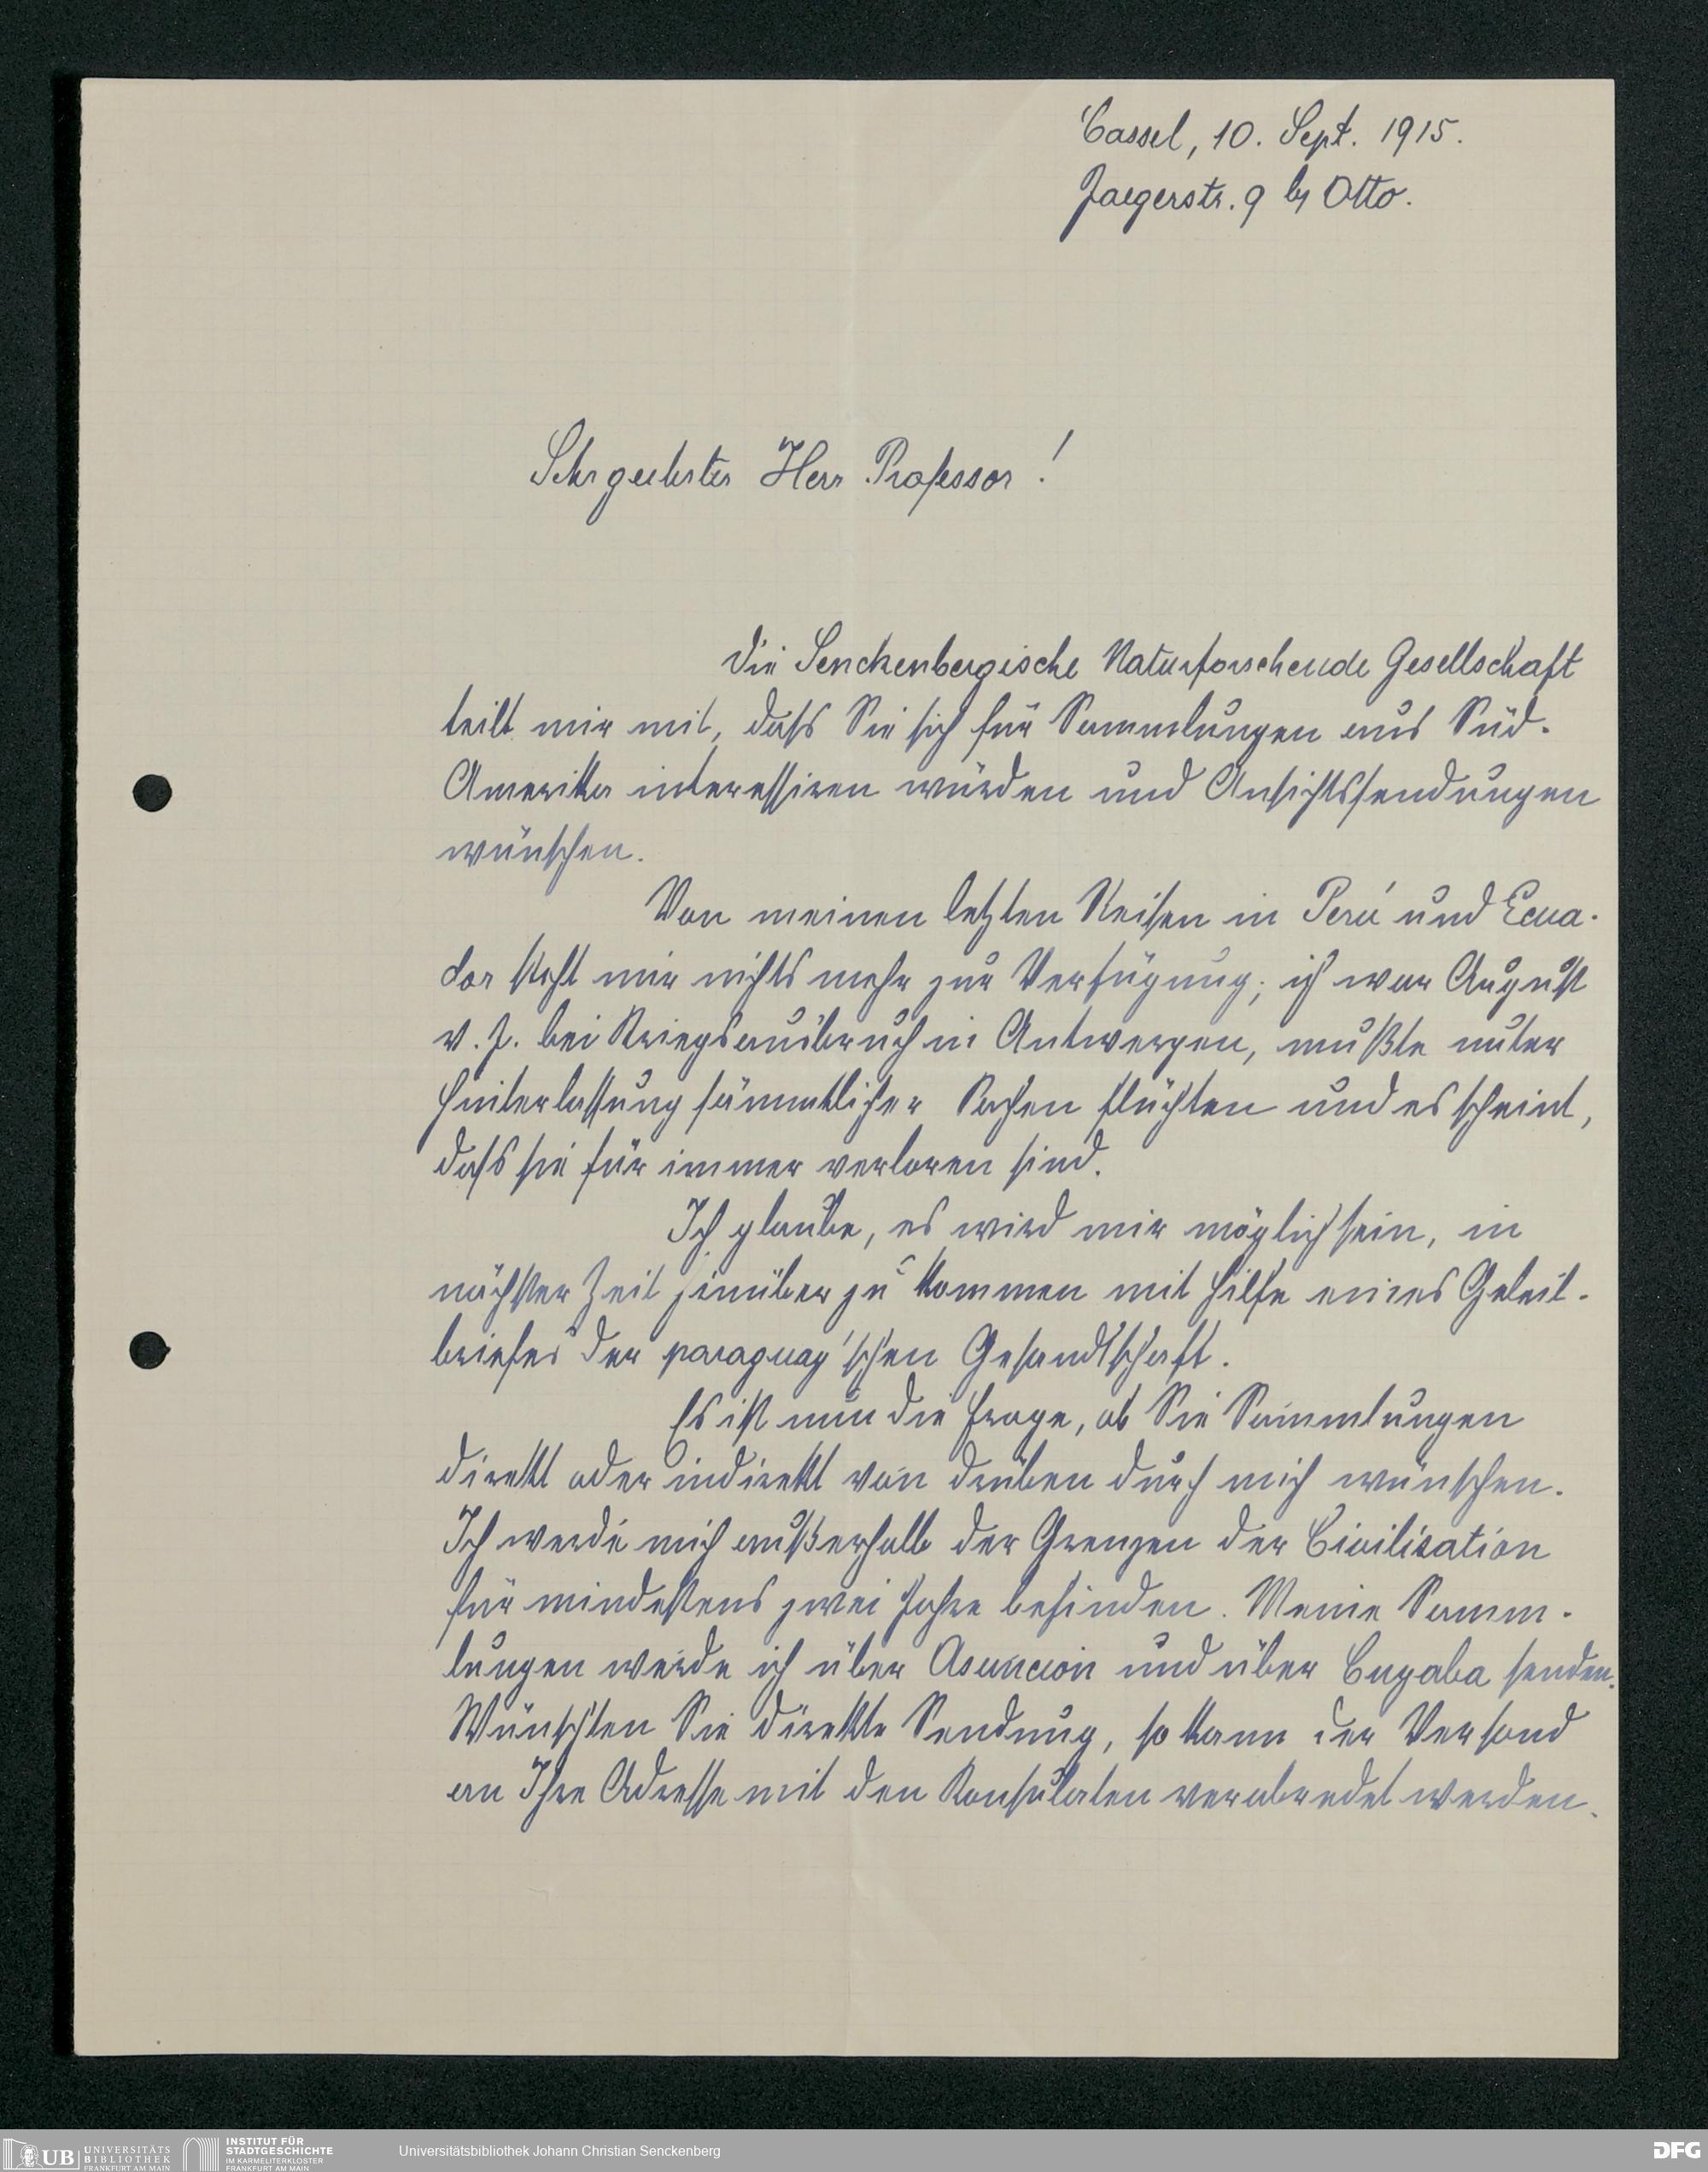 Cassel, 10. Sept. 1915.
Jaegerstr. 9 by Otto.
Sehr geehrter Herr Professor!
die Senckenbergische Naturforschende Gesellschaft
teilt mir mit, dass Sie sich für Sammlungen aus Süd-
Amerika interessiren würden und Ansichtssendungen
wünschen.
Von meinen letzten Reisen in Perú und Ecua-
dor steht mir nichts mehr zur Verfügung; ich war August
v. J. bei Kriegsausbruch in Antwerpen, mußte unter
Hinterlassung sämmtlicher Sachen flüchten und es scheint,
dass sie für immer verloren sind.
Ich glaube, es wird mir möglich sein, in
nächster Zeit hinüber zu kommen mit Hilfe eines Geleit-
briefes der paraguay'schen Gesandtschaft.
Es ist nun die Frage, ob Sie Sammlungen
direkt oder indirekt von drüben durch mich wünschen.
Ich werde mich außerhalb der Grenzen der Civilisation
für mindestens zwei Jahre befinden. Meine Samm-
lungen werde ich über Asuncion und über Cuyaba senden.
Wünschten Sie direkte Sendung, so kann der Versand
an Ihre Adresse mit den Konsulaten verabredet werden.
UB UNIVERSITÄTS
BIBLIOTHEK
FRANKFURT AM MAIN
INSTITUT FÜR
STADTGESCHICHTE
IM KARMELITERKLOSTER
FRANKFURT AM MAIN
Universitätsbibliothek Johann Christian Senckenberg
DFG